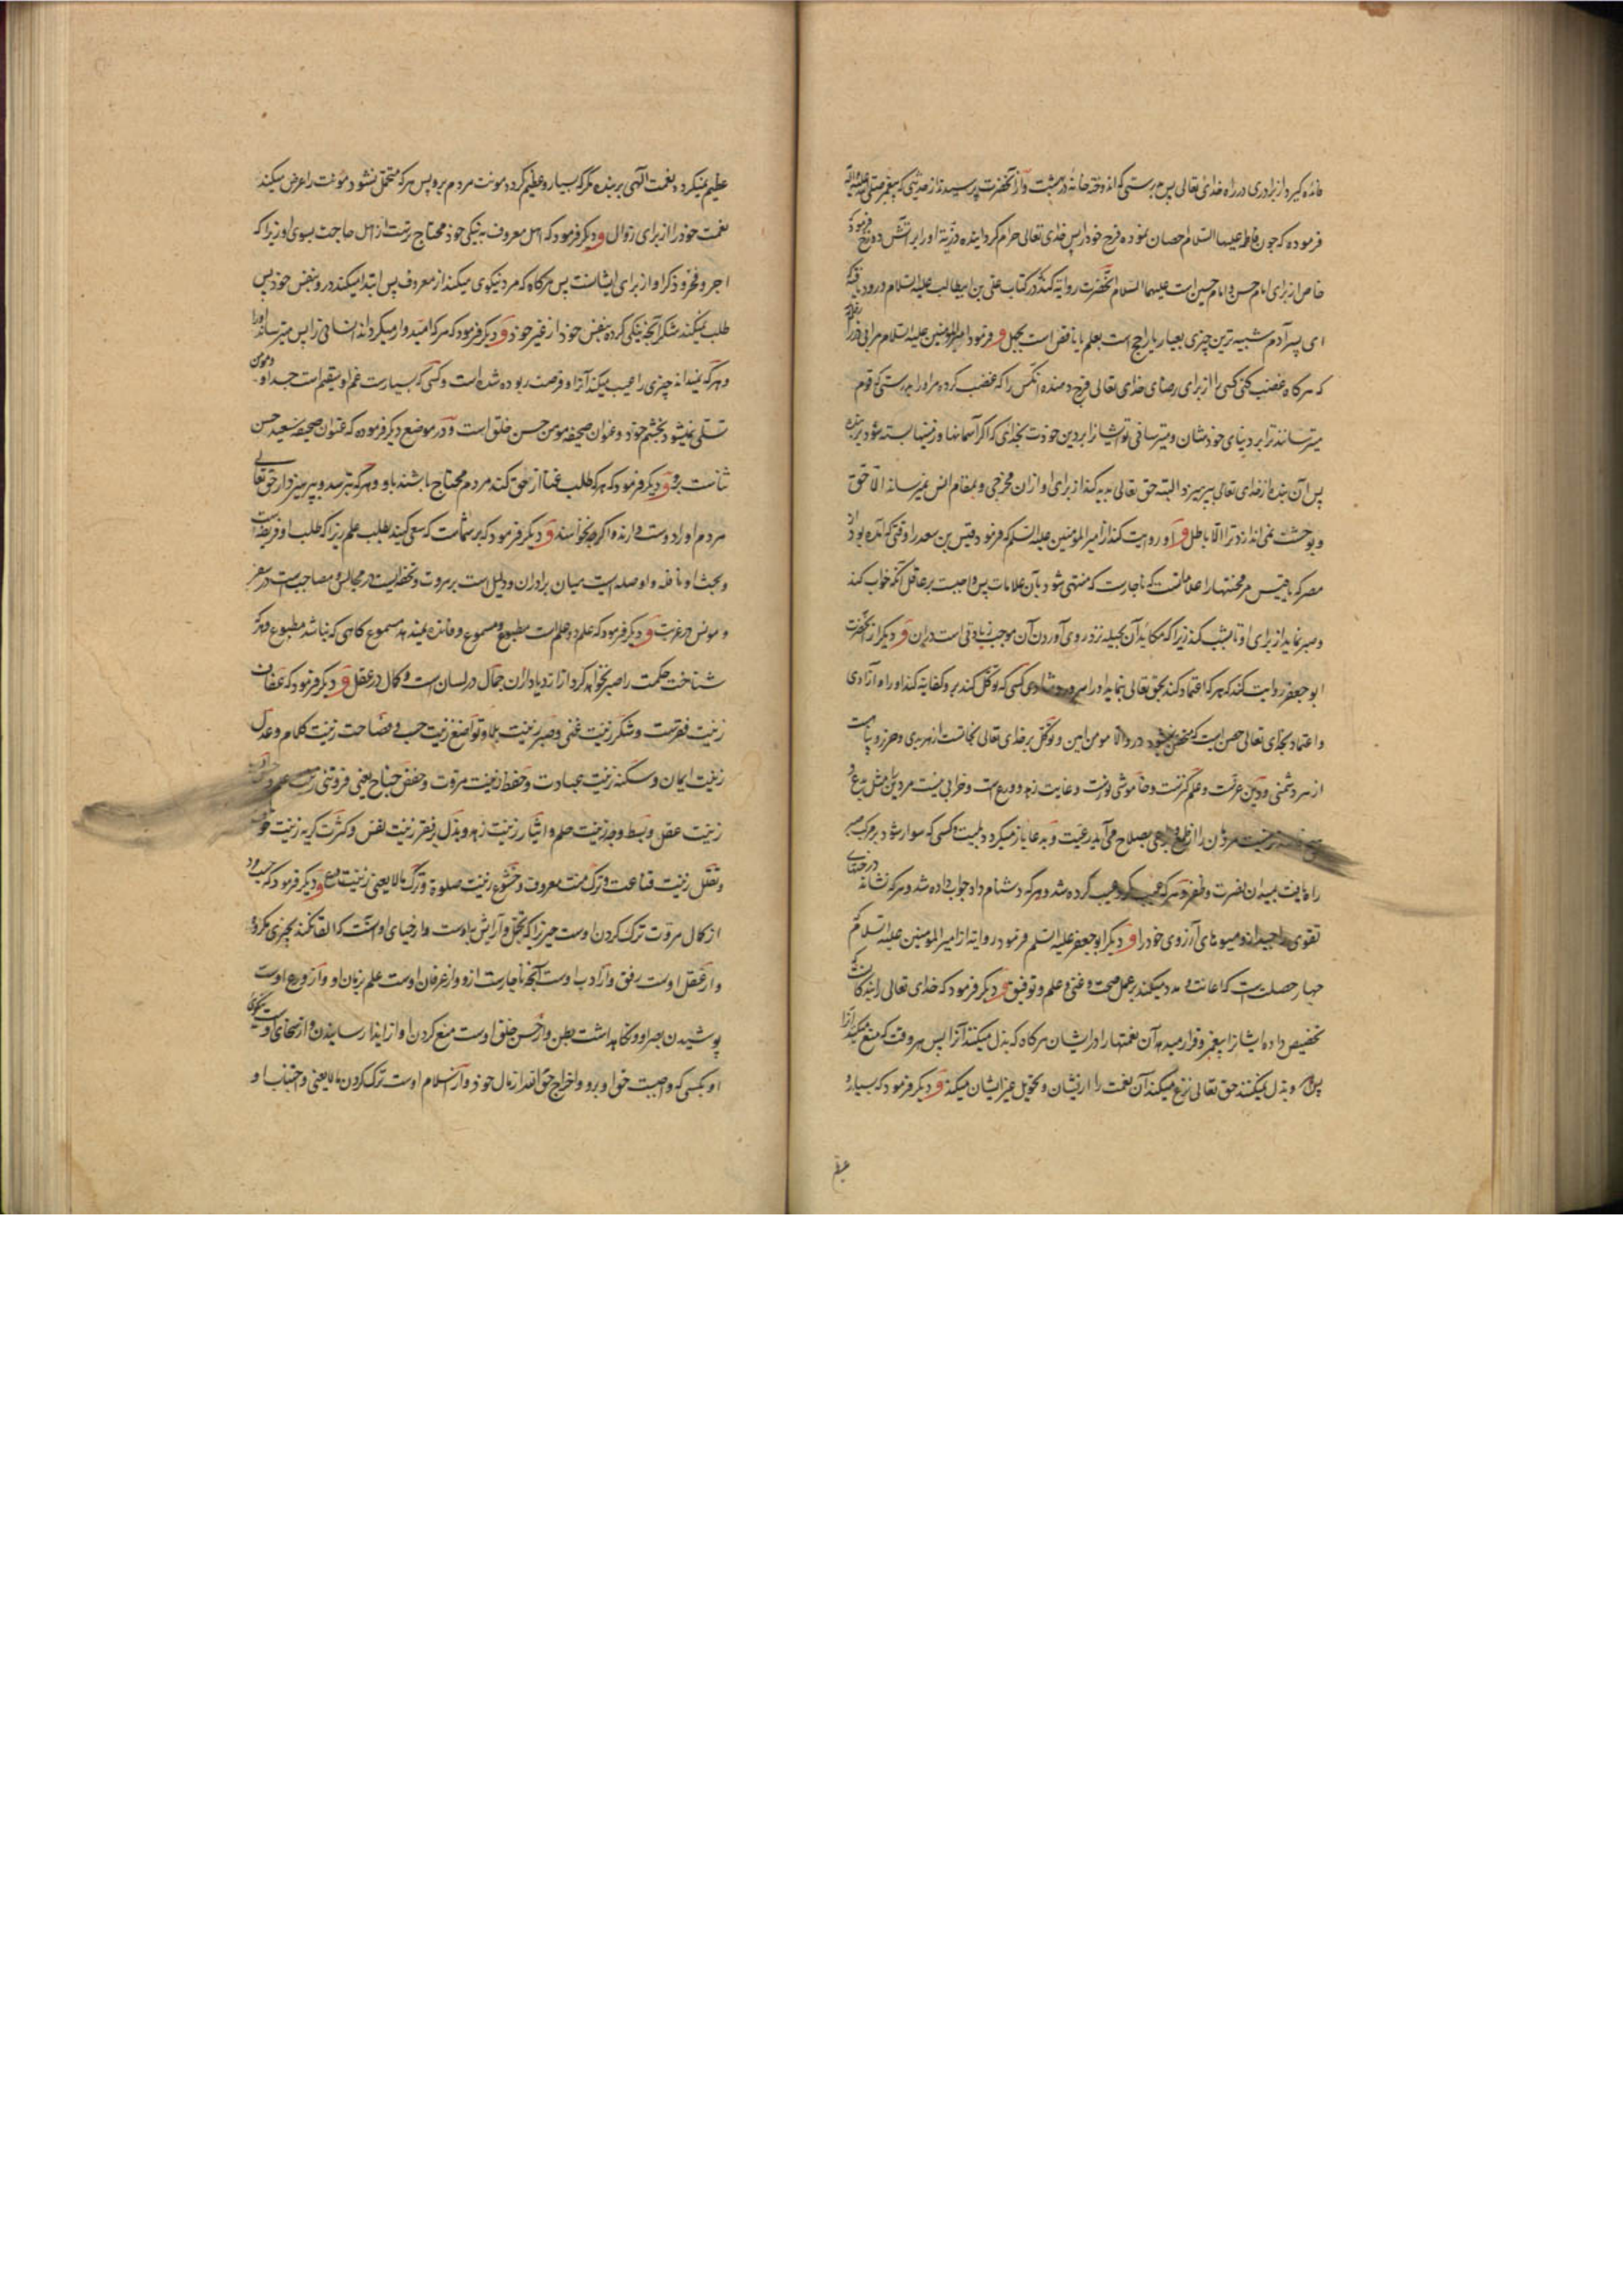 فرموده که چون فاطمه علیها السلام احصان نموده فرج خود را پس خدای تعالی حرام گردانیده ذریة او را بر آتش دوزخ
خاص از برای امام حسن و امام حسین است علیهما السلام آنحضرت روایه کند در کتاب علی بن ابیطالب علیه السلام
ای پسر آدم شبیه ترین چیزی بعیار یا راجح است بعلم یا ناقص است بجهل و فرمود امیرالمؤمنین علیه السلام
که هر گاه غضب کنی کسی را از برای رضای خدای تعالی
میترسانند ترا بر دنیای خودشان و میترسانی تو ایشانرا بر دین خودت بخدای که اگر آسمانها و زمینها بسته شود بر بنده
پس آن بنده از خدای تعالی بپرهیزد البته حق تعالی پدید کند از برای او از آن مخرجی و بمقام انس نمیرساند الا حق
و بوحشت نمی اندازد ترا الا باطل و او روایت کند از امیرالمؤمنین علیه السلم که فرمود قیس بن سعد را وقتی که آمده بود از
مصر که یا قیس مر محنتها را که ناچارست که منتهی شود بآن علامات پس واجبست بر عاقل آنکه خواب کند
زیرا که مکاید آن بحیله نزد روی آوردن آن موجب زیادتی است در آن و دیگر از آنحضرت
ابو جعفر روایت کند که هر که اعتماد کند بحق تعالی بنماید او را کسی که توکل کند برو کفایه کند او را و آزادی
واعتماد بخدای تعالی حصن است که درو الا مومن امین و توکل بر خدای تعالی نجاتست از هر بدی و حرز و پناهست
از هر دشمنی و دین عزتست و علم گنزست و خاموشی نورست و غایت زهد و ورع است و خرابی نیست مر دین را مثل بدع و
بصلاح می آید رعیت و بدعا باز میگردد بلیت و کسی که سوار شود بر مرکب صبر
راه یافت بمیدان نصرت و ظفر و هر که عیب کرد عیب کرده شد و هر که دشنام داد جواب داده شد و هر که نشانه
تقوی میوه های آرزوی خود را و دیگر ابو جعفر علیه السلم فرمود روایه از امیرالمومنین علیه السلام
چهار خصلت است که اعانت و مدد میکنند بر عمل صحت و غنی و علم و توفیق و دیگر فرمود که خدای تعالی را بندگانست که
تخصیص داده ایشانرا بنعم و قرار میدهد آن نعمتها را در ایشان هر گاه که بذل میکنند آنرا پس هر وقت که منع میکنند آنرا
و بذل نمیکنند حق تعالی نزع میکند آن نعمت را از ایشان و تحویل غیر ایشان میکند و دیگر فرمود که بسیار و
عظیم
عظیم نمیگردد نعمت الهی بر بنده مگر که بسیار و عظیم گردد مونت مردم برو پس هر که متحمل نشود مونت را عرض میکند
نعمت خود را از برای زوال و دیگر فرمود که اهل معروف به نیکی خود محتاج ترست از اهل حاجت بسوی او زیرا که
اجر و فخر و ذکر او از برای ایشانست پس هر گاه که مرد نیکوی میکند از معروف پس ابتدا میکند درو بنفس خود پس
طلب نمیکند شکر آنچه نیکی کرده بنفس خود از غیر خود و دیگر فرمود که هر که امیدوار میگرداند
و هر که نمیداند چیزی را عیب میکند آنرا و فرصت ربوده شده است و کسی که بسیارست غم او سقیم است جسد او و مومن
تسلی نمیشود بخشم خود و عنوان صحیفه مومن حسن خلق است و در موضع دیگر فرموده که عنوان صحیفه سعید حسن
ثناست برو و دیگر فرمود که هر که طلب غنا از حق کند مردم محتاج باشند باو و هر که بترسد و بپرهیزد از حق تعالی
مردم او را دوست دارند و اگر چه نخواسند و دیگر فرمود که بر شماست که سعی کنید بطلب علم زیرا که طلب او فریضه است
و بحث او نافله و او صله است میان برادران و دلیل است بر مروت و تحفه ایست در مجالس و مصاحب است در سفر
و مونس در غربت و دیگر فرمود که علم دو علم است مطبوع و مسموع و فائده نمیدهد مسموع گاهی که نباشد مطبوع و هر که
شناخت حکمت را صبر نخواهد کرد از ازدیاد از آن جمال در لسان است و کمال در عقل و دیگر فرمود که عفاف
زینت فقرست و شکر زینت غنی و صبر زینت بلا و تواضع زینت حسب و فصاحت زینت کلام و عدل
زینت ایمان و سکینه زینت عبادت و حفظ زینت مروت و خفض جناح یعنی فروتنی
زینت عقل و بسط وجه زینت حلم و ایثار زینت زهد و بذل زینت نفس و کثرت گریه زینت خوف
و تقلل زینت قناعت و ترک منت معروف و خشوع زینت صلوة و ترک مالا یعنی زینت ورع و دیگر فرمود که
از کمال مروت ترک کردن اوست چیزی را که تجمل و آرایش بدوست و از حیای اوست که القا نکند بچیزی مکروه
و از عقل اوست رفق و از ادب اوست آنچه ناچارست ازو و از عرفان اوست علم بزبان او و از ورع اوست
پوشیدن بصر او و نگاه داشت بطن و از حسن خلق اوست منع کردن او از ایذا رسانیدن و از سخای اوست نیکوی
او بکسی که واجبست حق او برو و اخراج حق الله از مال خود و از اسلام اوست ترک کردن مالا یعنی و اجتناب او